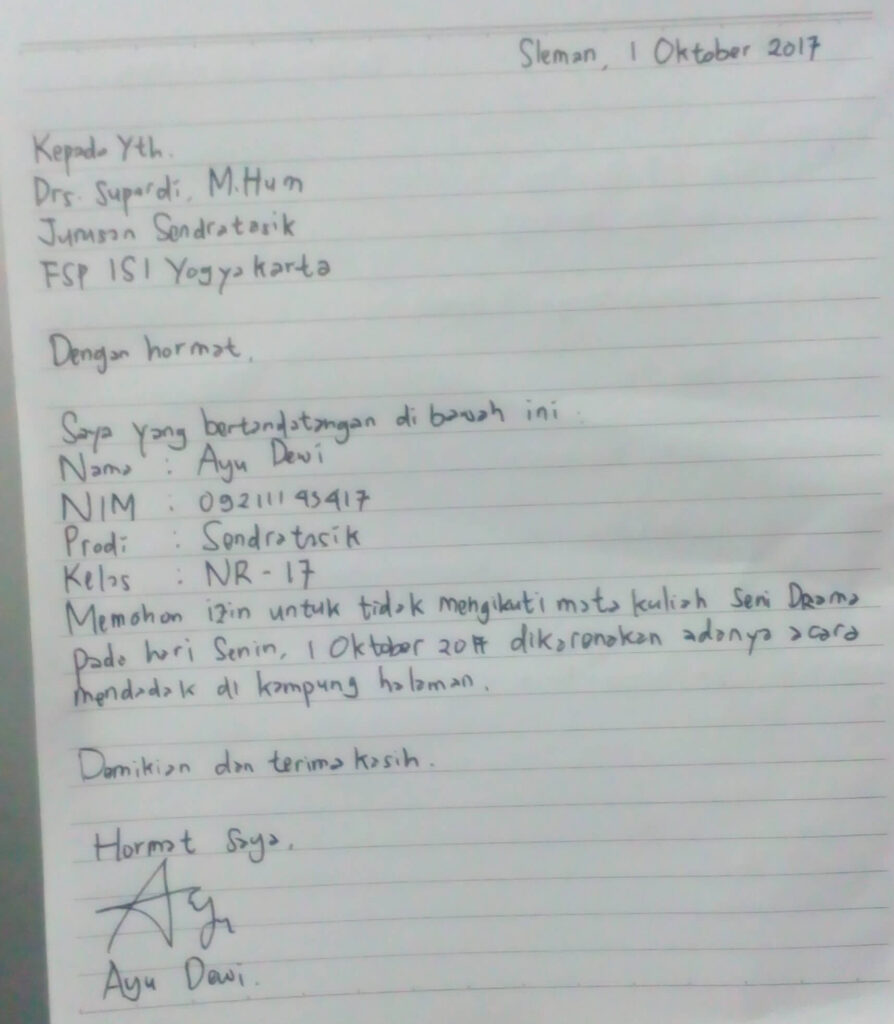 Sleman, 1 Oktober 2017
Kepada Yth.
Drs. Supardi, M.Hum
Jurusan Sendratasik
FSP ISI Yogyakarta
Dengan hormat,
Saya yang bertandatangan di bawah ini :
Nama : Ayu Dewi
NIM : 09211145417
Prodi : Sendratasik
Kelas : NR - 17
Memohon izin untuk tidak mengikuti mata kuliah Seni Drama
pada hari Senin, 1 Oktober 2017 dikarenakan adanya acara
mendadak di kampung halaman.
Demikian dan terima kasih.
Hormat saya,
Ayu Dewi.